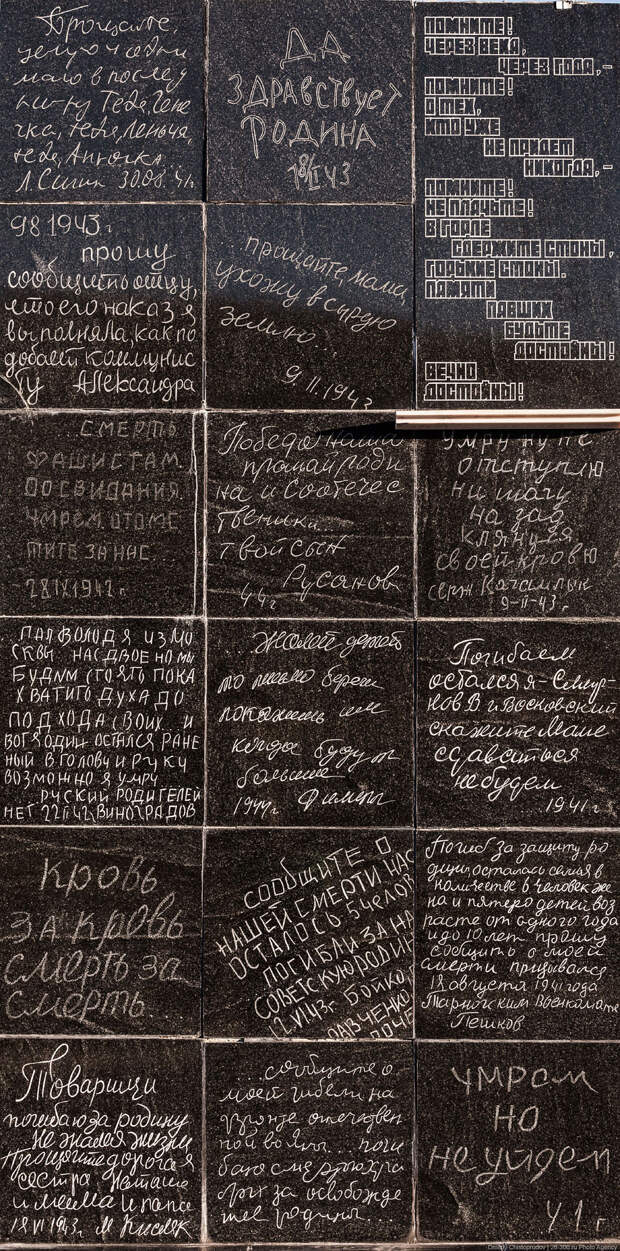 Прощайте,
целую и обни
маю в послед
Тебя, Гене
чка, тебя, Лёньча,
тебя, Анночка...
30.08.41г.
ДА
ЗДРАВСТВУЕТ
РОДИНА
18/II 43
ПОМНИТЕ!
ЧЕРЕЗ ВЕКА,
ЧЕРЕЗ ГОДА,-
ПОМНИТЕ!
О ТЕХ,
КТО УЖЕ
НЕ ПРИДЕТ
НИКОГДА,-
ПОМНИТЕ!
НЕ ПЛАЧЬТЕ!
В ГОРЛЕ
СДЕРЖИТЕ СТОНЫ,
ГОРЬКИЕ СТОНЫ.
ПАМЯТИ
ПАВШИХ
БУДЬТЕ
ДОСТОЙНЫ!
ВЕЧНО
ДОСТОЙНЫ!
9 8 1943 г.
прошу
сообщить отцу,
что его наказ я
выполняла, как по
добает коммунис
ту Александра
...прощайте, мама,
ухожу в сырую
землю...
9. II. 1943
...СМЕРТЬ
ФАШИСТАМ.
ДО СВИДАНИЯ.
УМРЕМ. ОТОМС
ТИТЕ ЗА НАС...
28 IX 1942 г.
Победа наша
прощай роди
на и соотечес
твеники...
твой сын
Русанов
44 г.
умру ну не
отступлю
ни шагу
на зад
клянуся
своей кровю
серж
9-II-43 г.
ПАЛ ВОЛОДЯ ИЗ МО
СКВЫ НАС ДВОЕ НО МЫ
БУДИМ СТОЯТЬ ПОКА
ХВАТИТ ДУХА ДО
ПОДХОДА СВОИХ. И
ВОТ Я ОДИН ОСТАЛСЯ РАНЕ
НЫЙ В ГОЛОВУ И РУКУ
ВОЗМОЖНО Я УМРУ
РУСКИЙ РОДИТЕЛЕЙ
НЕТ 22 II 42 г. ВИНОГРАДОВ
Жалей детей
то письмо береги
покажешь им
когда будут
больше
1944 г.
Погибаем
остался я - Смир-
нов В и Восковский
скажите Маме
сдаваться
не будем
...1941 г.
КРОВЬ
ЗА КРОВЬ
СМЕРТЬ ЗА
СМЕРТЬ...
СООБЩИТЕ О
НАШЕЙ СМЕРТИ НАС
ОСТАЛОСЬ 5 ЧЕЛОВ
ПОГИБЛИ ЗА НА
СОВЕТСКУЮ РОДИН
12. VI 43 г. БОЙКО,
РАВЧЕНКО
Погиб за защиту ро
дины осталась семья в
количестве 6 человек же
на и пятеро детей воз
расте от одного года
и до 10 лет прошу
сообщить о моей
смерти призывался
18 августа 1941 года
Тарногским Военкомате
Пешков
Товарищи
погибаю за родину
Не жалея жизни
Прощайте дорогая
сестра Наташа
и мама и папа
18 VI 1943 г. М Кисляк
...сообщите о
моей гибели на
фронте отечествен
ной войны... поги
баю смертью хра
брых за освобожде
ние родины...
УМРОМ
НО
НЕ УЙДЕМ
41 г
Dmitry Chistoprudov | 28-300.ru Photo Agency